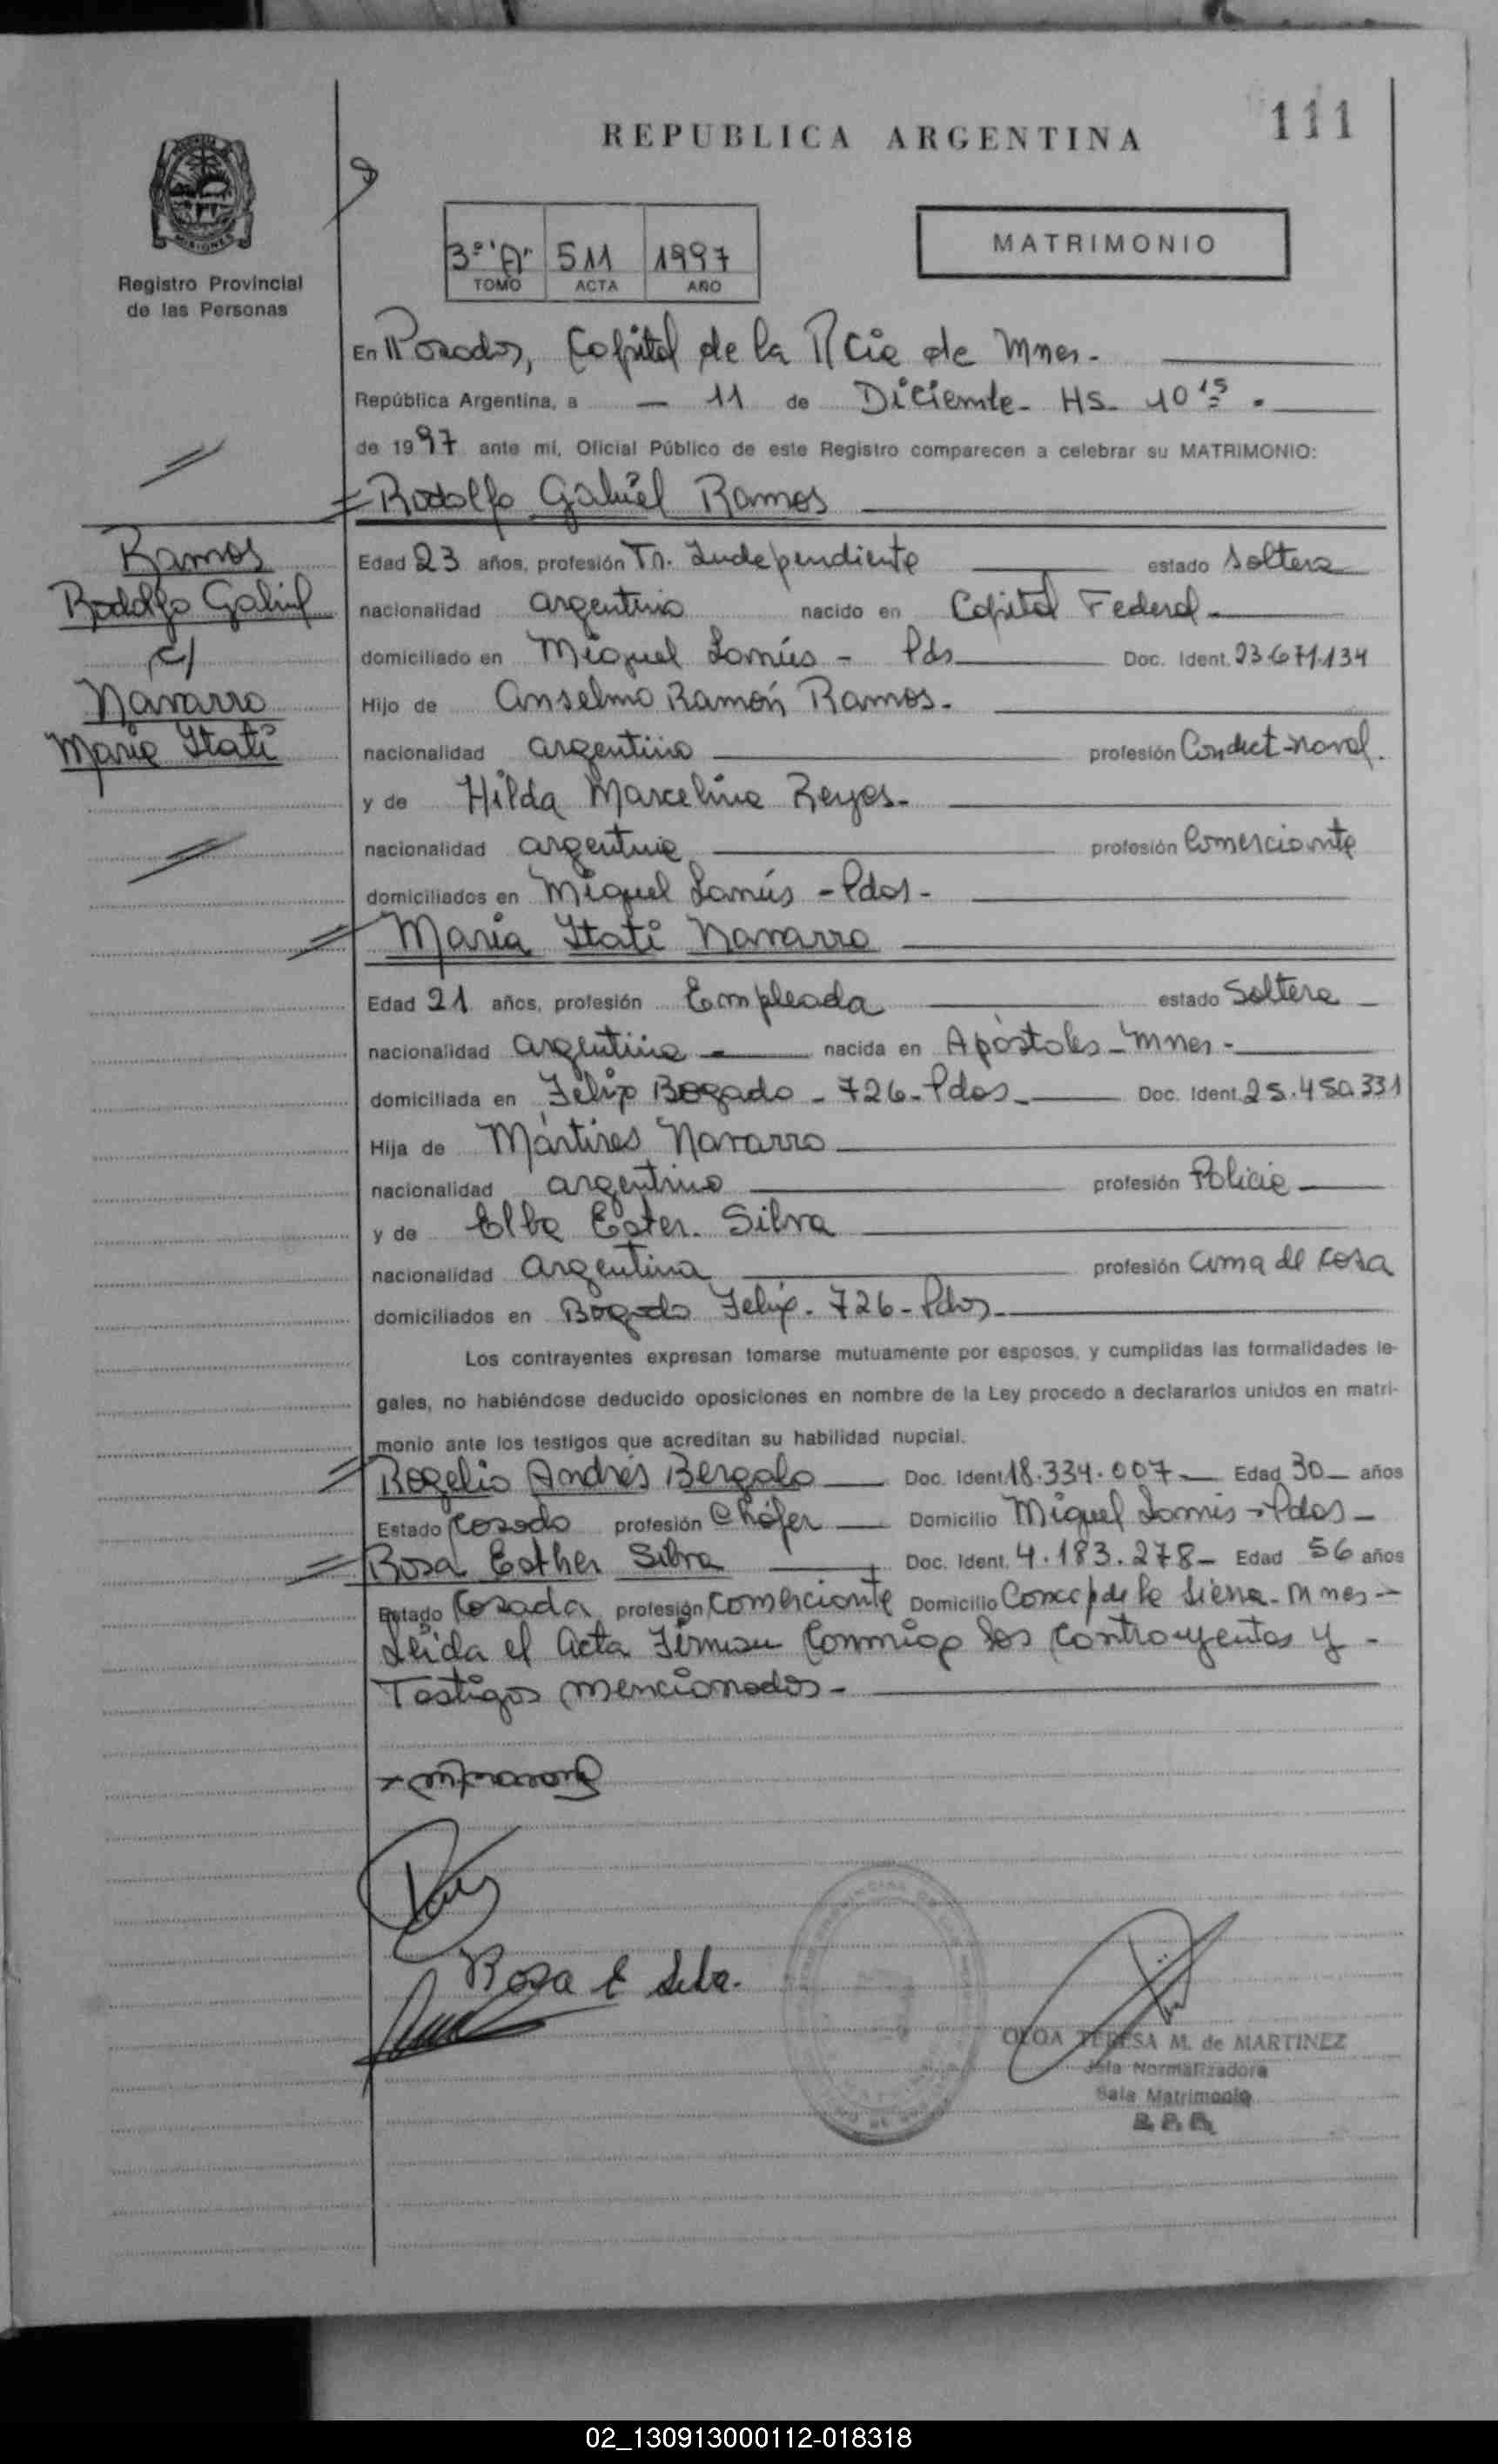 111
REPUBLICA ARGENTINA
MISIONES
Registro Provincial
de las Personas
3º "A" 511 1997
TOMO ACTA AÑO
MATRIMONIO
En Posadas, Capital de la Pcia de Mnes.
República Argentina, a 11 de Diciembre - HS. 10 15.
de 1997 ante mí, Oficial Público de este Registro comparecen a celebrar su MATRIMONIO:
Rodolfo Gabriel Ramos
Ramos
Rodolfo Gabriel
c/
Navarro
Maria Itatí
Edad 23 años, profesión Tr. Independiente estado Soltero
nacionalidad argentino nacido en Capital Federal.
domiciliado en Miguel Lanús - Pds Doc. Ident. 23.671.134
Hijo de Anselmo Ramón Ramos.
nacionalidad argentino profesión Conduct. naval.
y de Hilda Marcelina Reyes.
nacionalidad argentina profesión Comerciante
domiciliados en Miguel Lanús - Pdas -
Maria Itatí Navarro
Edad 21 años, profesión Empleada estado Soltera
nacionalidad argentina nacida en Apóstoles - Mnes -
domiciliada en Felix Bogado - 726 - Pdas - Doc. Ident. 25.450.331
Hija de Mártires Navarro
nacionalidad argentino profesión Policia
y de Elba Ester. Silva
nacionalidad argentina profesión ama de casa
domiciliados en Bogado Felix - 726 - Pdas -
Los contrayentes expresan tomarse mutuamente por esposos, y cumplidas las formalidades le-
gales, no habiéndose deducido oposiciones en nombre de la Ley procedo a declararlos unidos en matri-
monio ante los testigos que acreditan su habilidad nupcial.
Rogelio Andrés Bergalo Doc. Ident. 18.334.007 - Edad 30 años
Estado Casado profesión Chófer Domicilio Miguel Lanús - Pdas -
Rosa Esther Silva Doc. Ident. 4.183.278 - Edad 56 años
Estado Casada profesión Comerciante Domicilio Concep de la Sierra - Mnes -
Leida el Acta Firman Conmigo los Contrayentes y -
Testigos mencionados -
Rosa E Silva.
OLGA TERESA M. de MARTINEZ
Jefa Normalizadora
Sala Matrimonio
R.P.P.
02_130913000112-018318